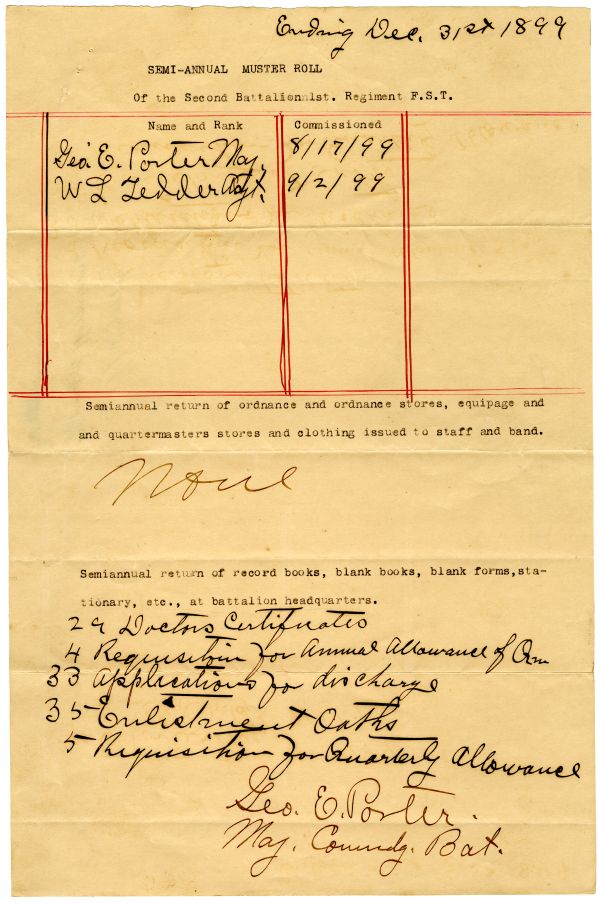 Ending Dec. 31st 1899
SEMI-ANNUAL MUSTER ROLL
Of the Second Battalionn1st. Regiment F.S.T.
Name and Rank
Commissioned
Geo. E. Porter Maj. 8/17/99
W L Tedder Adjt. 9/2/99
Semiannual return of ordnance and ordnance stores, equipage and
and quartermasters stores and clothing issued to staff and band.
None
Semiannual return of record books, blank books, blank forms,sta-
tionary, etc., at battalion headquarters.
29 Doctors Certificates
4 Requisition for Annual Allowance of Am
33 Applications for discharge
35 Enlistment Oaths
5 Requisition for Quarterly Allowance
Geo. E. Porter.
Maj. Comndg. Bat.